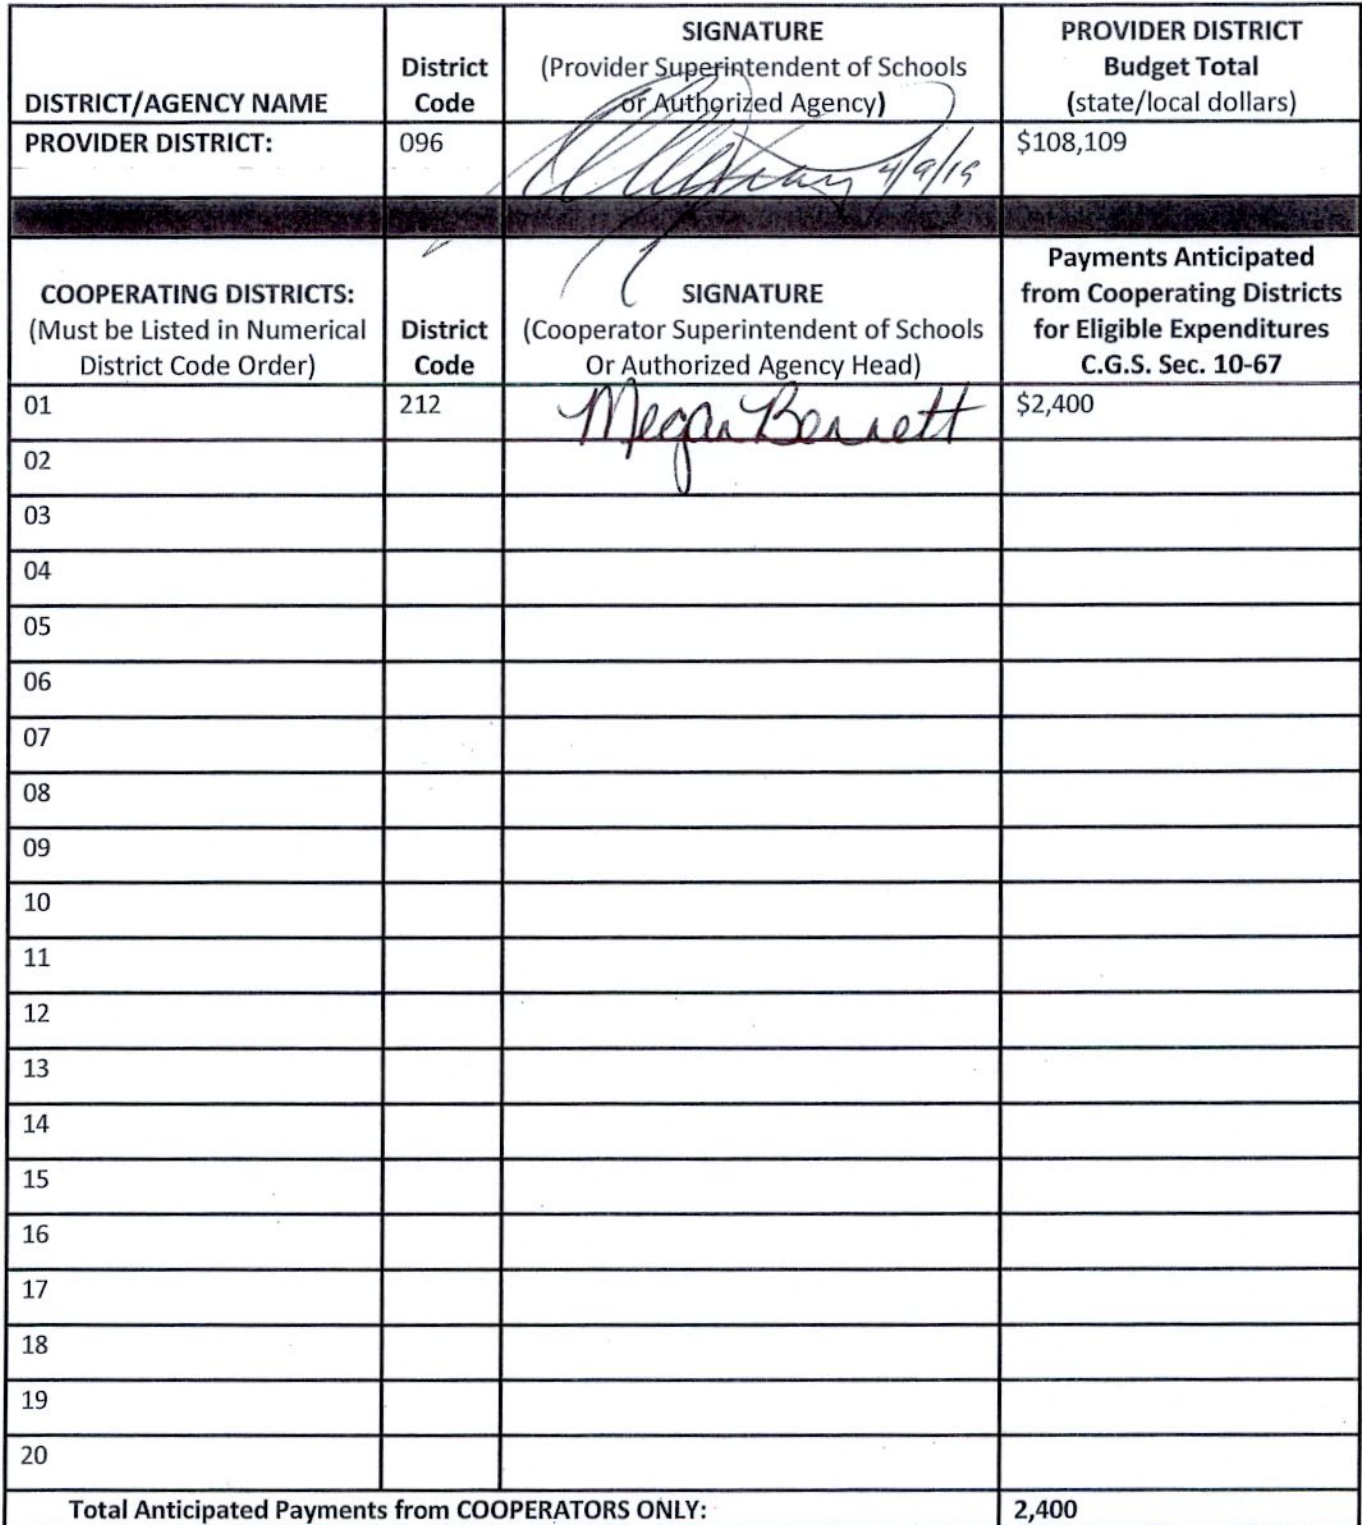 DISTRICT/AGENCY NAME
District
Code
SIGNATURE
(Provider Superintendent of Schools
or Authorized Agency)
PROVIDER DISTRICT
Budget Total
(state/local dollars)
PROVIDER DISTRICT:
096
4/9/19
$108,109
COOPERATING DISTRICTS:
(Must be Listed in Numerical
District Code Order)
District
Code
SIGNATURE
(Cooperator Superintendent of Schools
Or Authorized Agency Head)
Payments Anticipated
from Cooperating Districts
for Eligible Expenditures
C.G.S. Sec. 10-67
01
212
Megan Bennett
$2,400
02
03
04
05
06
07
08
09
10
11
12
13
14
15
16
17
18
19
20
Total Anticipated Payments from COOPERATORS ONLY:
2,400